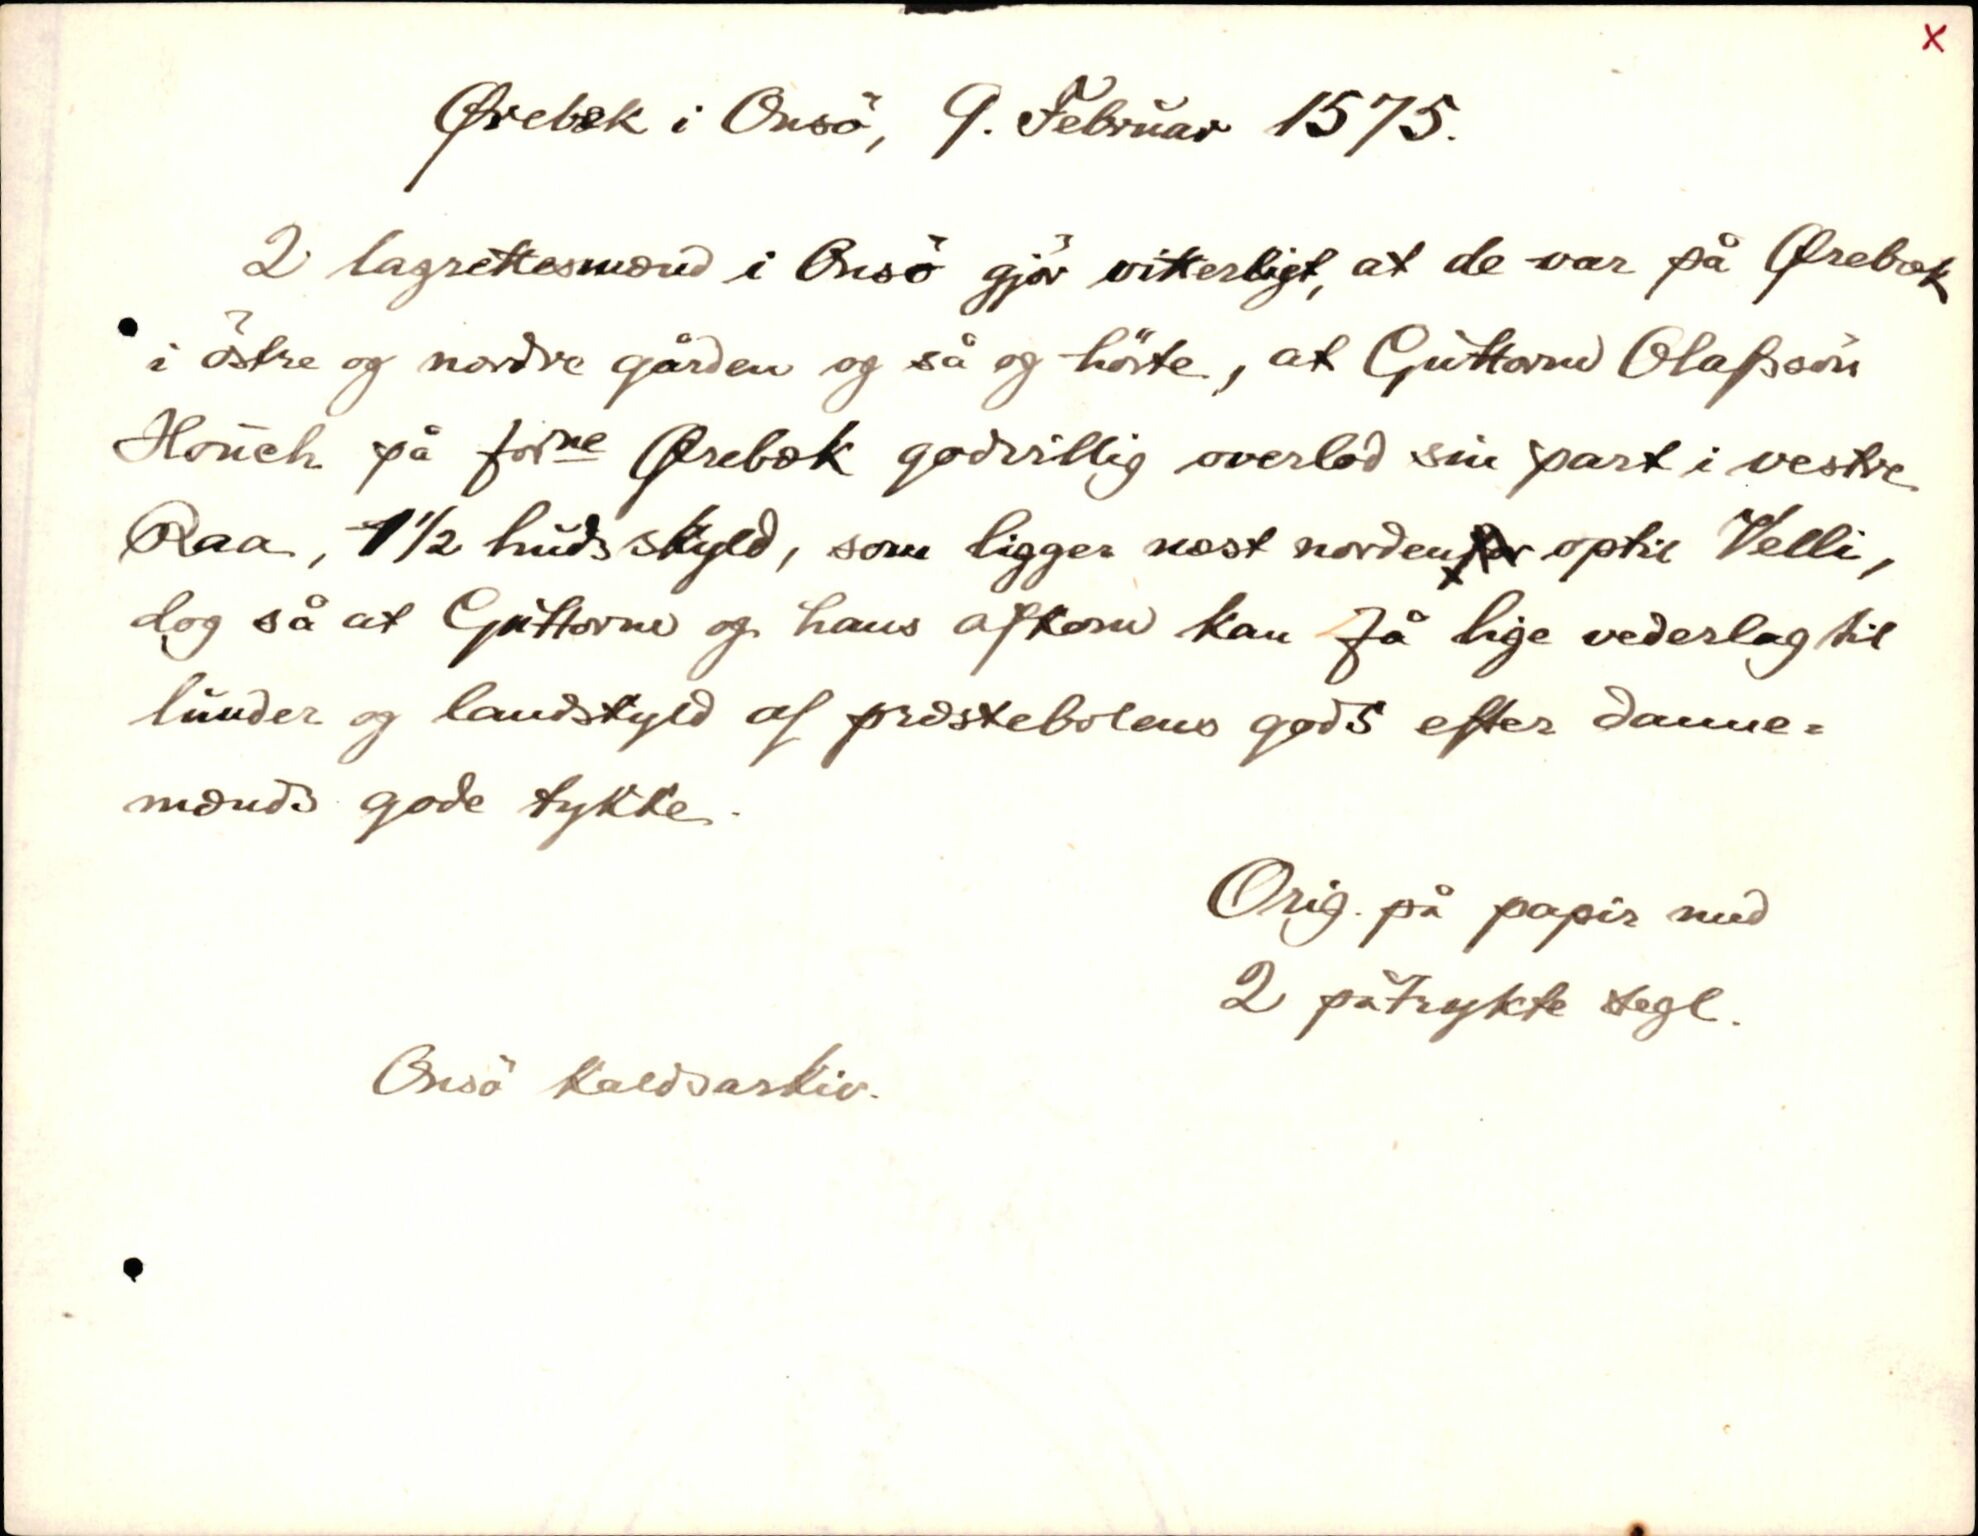 x
Ørebæk i Onsö, 9. Februar 1575.
2 lagrettesmænd i Onsö gjör vitterligt, at de var på Ørebæk
i östre og nordre gården og så og hörte, at Guttorm Olafssön
Houch på forne Ørebæk godvillig overlod sin part i vestre
Raa, 1 1/2 huds skyld, som ligger næst norden optil Velli,
dog så at Guttorm og hans afkom kan få lige vederlag til
lunder og landskyld af præstebolens gods efter danne=
mænds gode tykke.
Orig. på papir med
2 påtrykte segl.
Onsö kaldsarkiv.